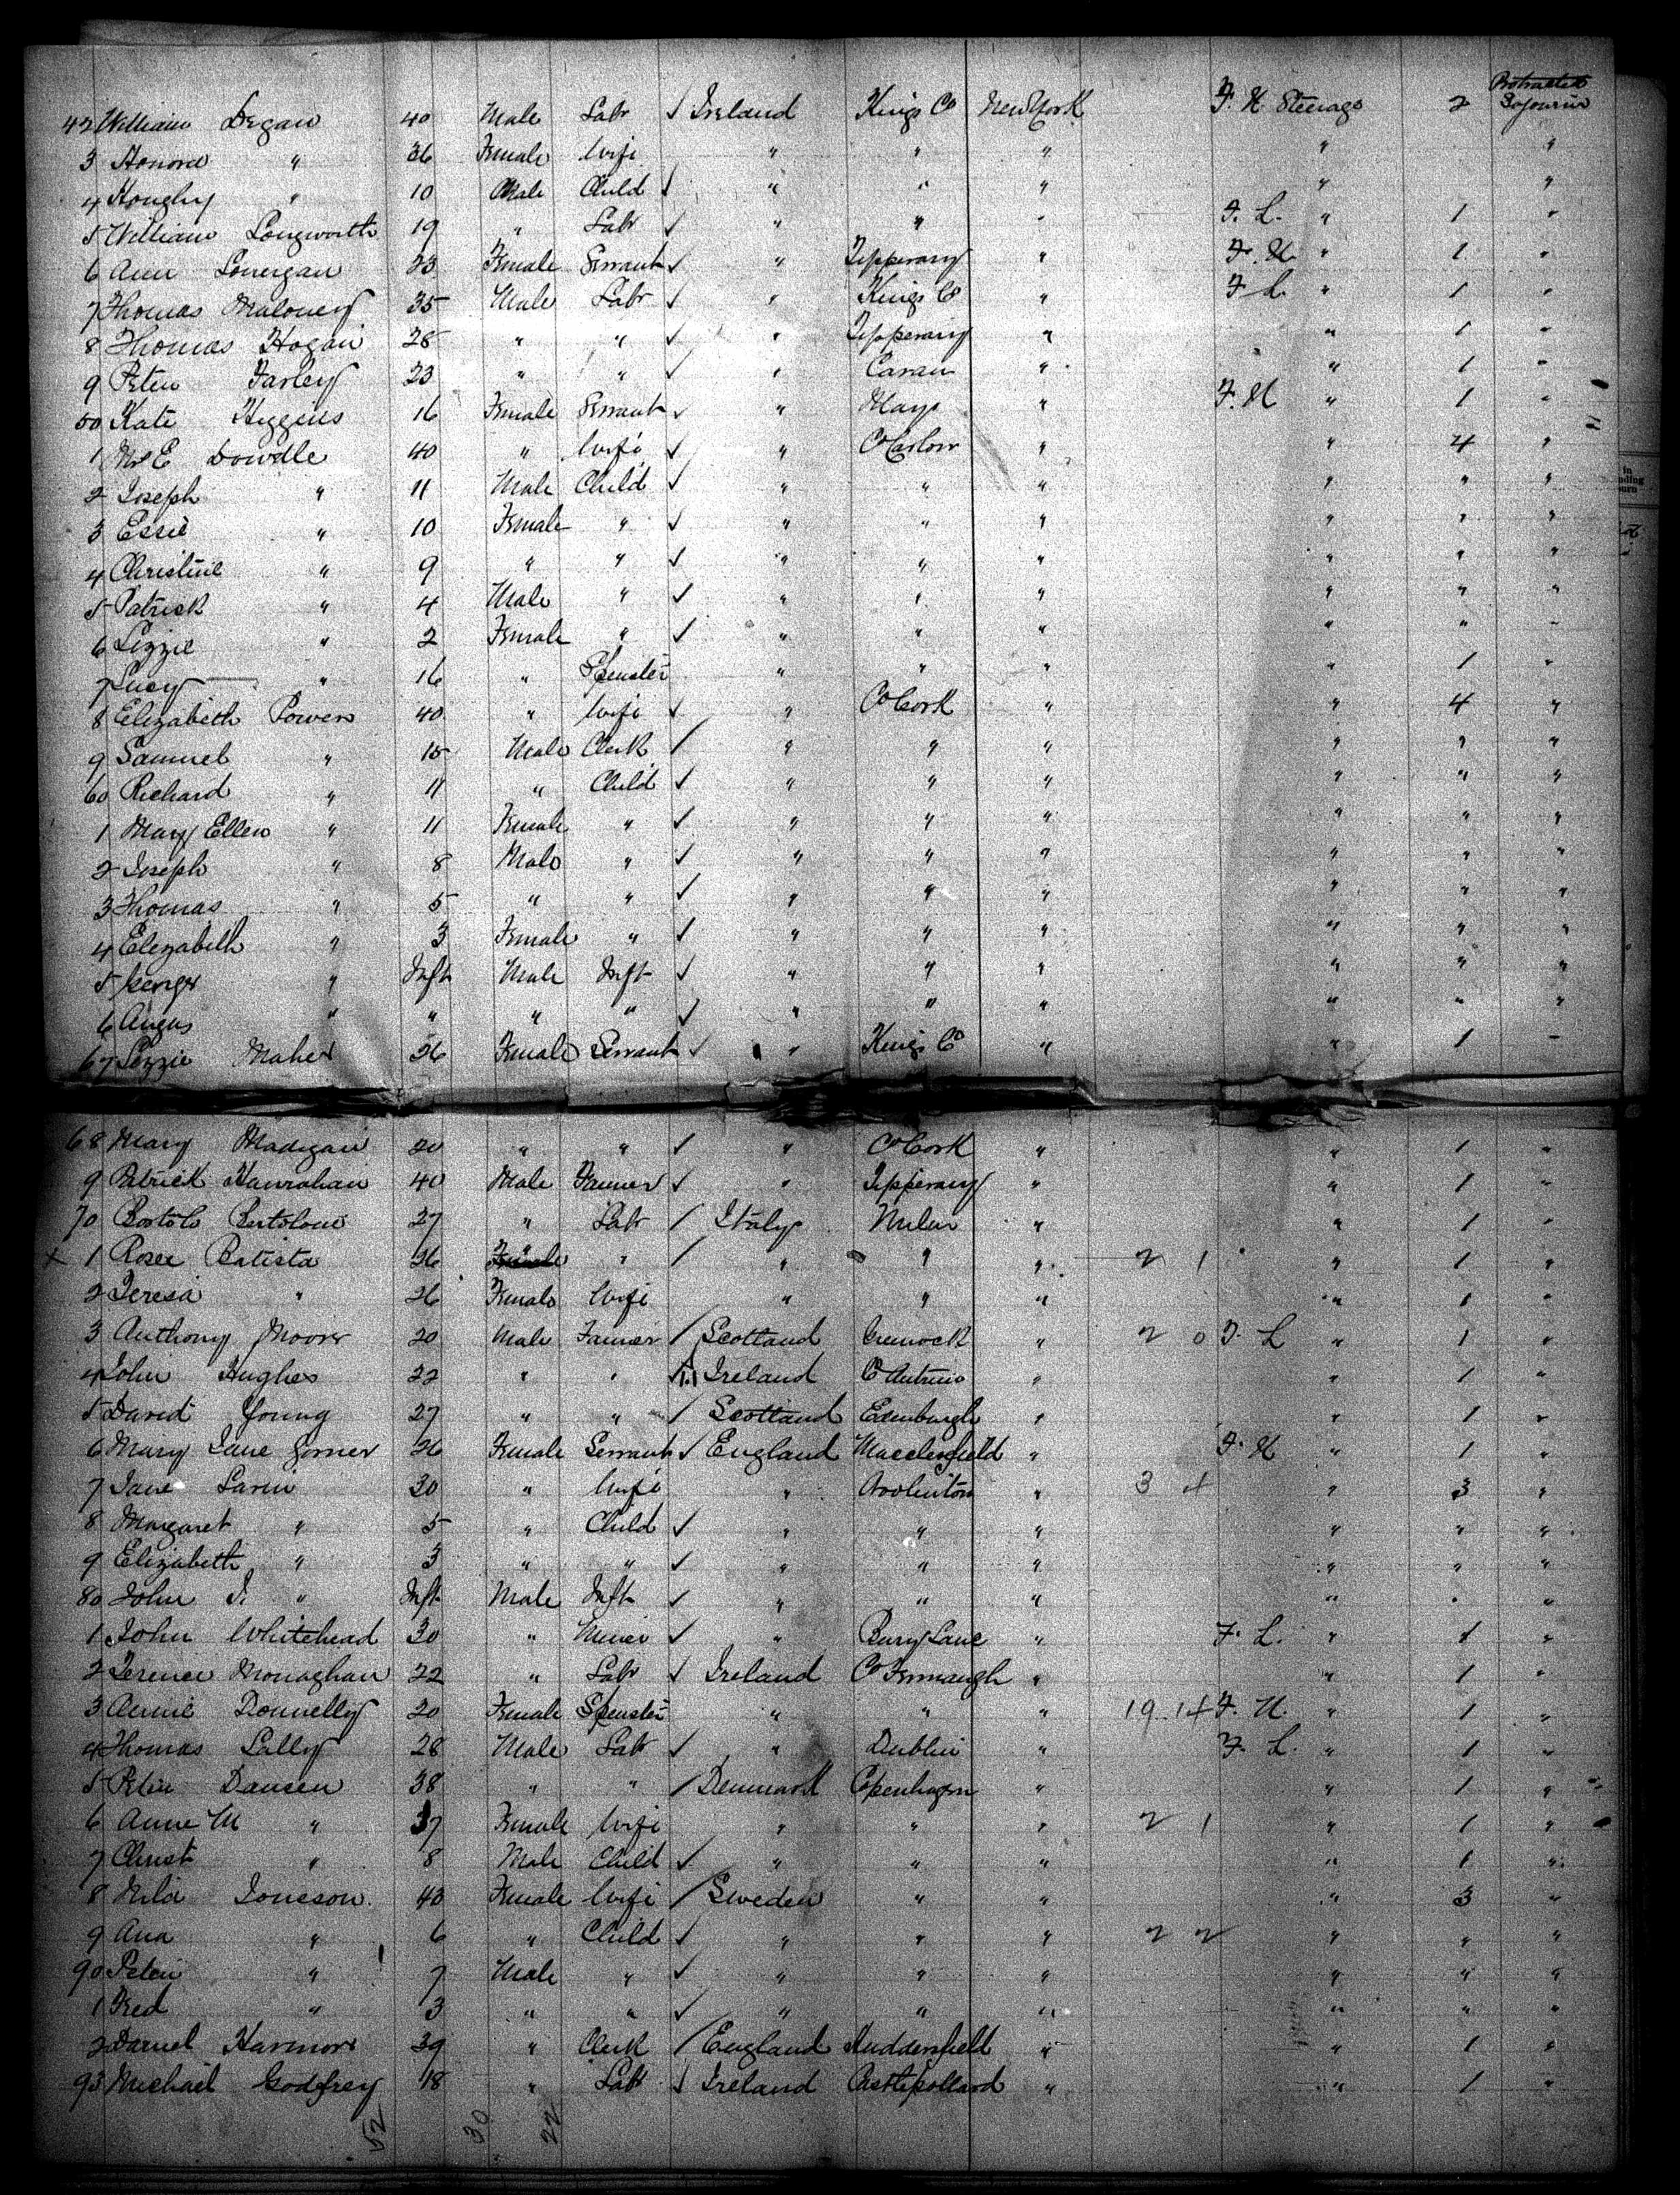 Protracted
42 William Degan 40 Male Labr ✓ Ireland Kings Co New York F. H Steerage 2 Sojourn
3 Honora " 36 Female Wife " " " " "
4 " 10 Male Child ✓ " " " " "
5 William Longworth 19 " Labr ✓ " " " F. L. " 1 "
6 Ann Lonergan 23 Female Servant ✓ " Tipperary " F. H " 1 "
7 Thomas Maloney 35 Male Labr ✓ " Kings Co " F L. " 1 "
8 Thomas Hogan 28 " " ✓ " Tipperary " " 1 "
9 Peter Farley 23 " " ✓ " Cavan " " 1 "
50 Kate Higgins 16 Female Servant ✓ " Mayo " F. H " 1 "
1 Mrs E Dowdle 40 " Wife ✓ " Co Carlow " " 4 "
2 Joseph " 11 Male Child ✓ " " " " " "
3 Essie " 10 Female " ✓ " " " " " "
4 Christine " 9 " " ✓ " " " " " "
5 Patrick " 4 Male " ✓ " " " " " "
6 Lizzie " 2 Female " ✓ " " " " " "
7 Lucy " 16 " Spinster " " " " 1 "
8 Elizabeth Power 40 " Wife ✓ " Co Cork " " 4 "
9 Samuel " 15 Male Clerk / " " " " " "
60 Richard " 11 " Child ✓ " " " " " "
1 Mary Ellen " 11 Female " ✓ " " " " " "
2 Joseph " 8 Male " ✓ " " " " " "
3 Thomas " 5 " " ✓ " " " " " "
4 Elizabeth " 3 Female " ✓ " " " " " "
5 George " Inft Male Inft ✓ " " " " " "
6 Angus " " " " ✓ " " " " " "
67 Lizzie Maher 26 Female Servant ✓ " Kings Co " " 1 "
68 Mary Madigan 20 " " ✓ " Co Cork " " 1 "
9 Patrick Hanrahan 40 Male Farmer ✓ " Tipperary " " 1 "
70 Bortolo Bertoloni 27 " Labr / Italy Milan " " 1 "
x 1 Rosee Batista 26 " " / " " " 2 1 " 1 "
2 Teresa " 26 Female Wife " " " " 1 "
3 Anthony Moore 20 Male Farmer / Scotland Greenock " 2 0 F. L " 1 "
4 John Hughes 22 " " Ireland Co Antrim " " 1 "
5 David Young 27 " " / Scotland Edinburgh " " 1 "
6 Mary Jane 26 Female Servant ✓ England Macclesfield " F. H " 1 "
7 Jane 30 " Wife " " 3 4 " 3 "
8 Margaret " 5 " Child ✓ " " " " " "
9 Elizabeth " 3 " " ✓ " " " " " "
80 John J. " Inft Male Inft ✓ " " " " " "
1 John Whitehead 30 " Miner ✓ " Bury Lane " F. L. " 1 "
2 Terence Monaghan 22 " Labr ✓ Ireland Co Fermangh " " 1 "
3 Annie Donnelly 20 Female Spinster " " " 19 14 F. H. " 1 "
4 Thomas Lally 28 Male Labr ✓ " Dublin " F. L. " 1 "
5 Peter Dansen 38 " " / Denmark Copenhagen " " 1 "
6 Anne M " 37 Female Wife " " " 2 1 " 1 "
7 Christ " 8 Male Child ✓ " " " " 1 "
8 Nila Joneson 40 Female Wife / Sweden " " " 3 "
9 Ana " 6 " Child ✓ " " " 2 2 " " "
90 Peter " 7 Male " ✓ " " " " " "
1 Fred " 3 " " ✓ " " " " " "
2 Daniel Harmon 39 " Clerk / England Huddersfield " " 1 "
93 Michael Godfrey 18 " Labr ✓ Ireland Castlepollard " " 1 "
52 30 22